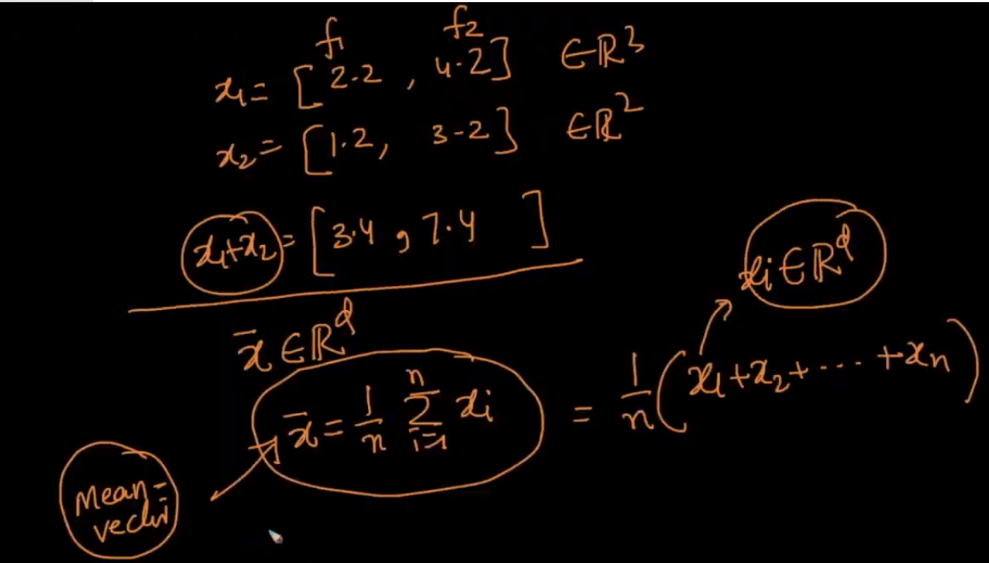 f₁ f₂
x₁ = [2.2, 4.2] ∈ ℝ³
x₂ = [1.2, 3.2] ∈ ℝ²
x₁+x₂ = [3.4, 7.4 ]
xᵢ ∈ ℝᵈ
x̄ ∈ ℝᵈ
x̄ = 1/n Σᵢ₌₁ⁿ xᵢ = 1/n (x₁+x₂+....+xₙ)
Mean-
vector